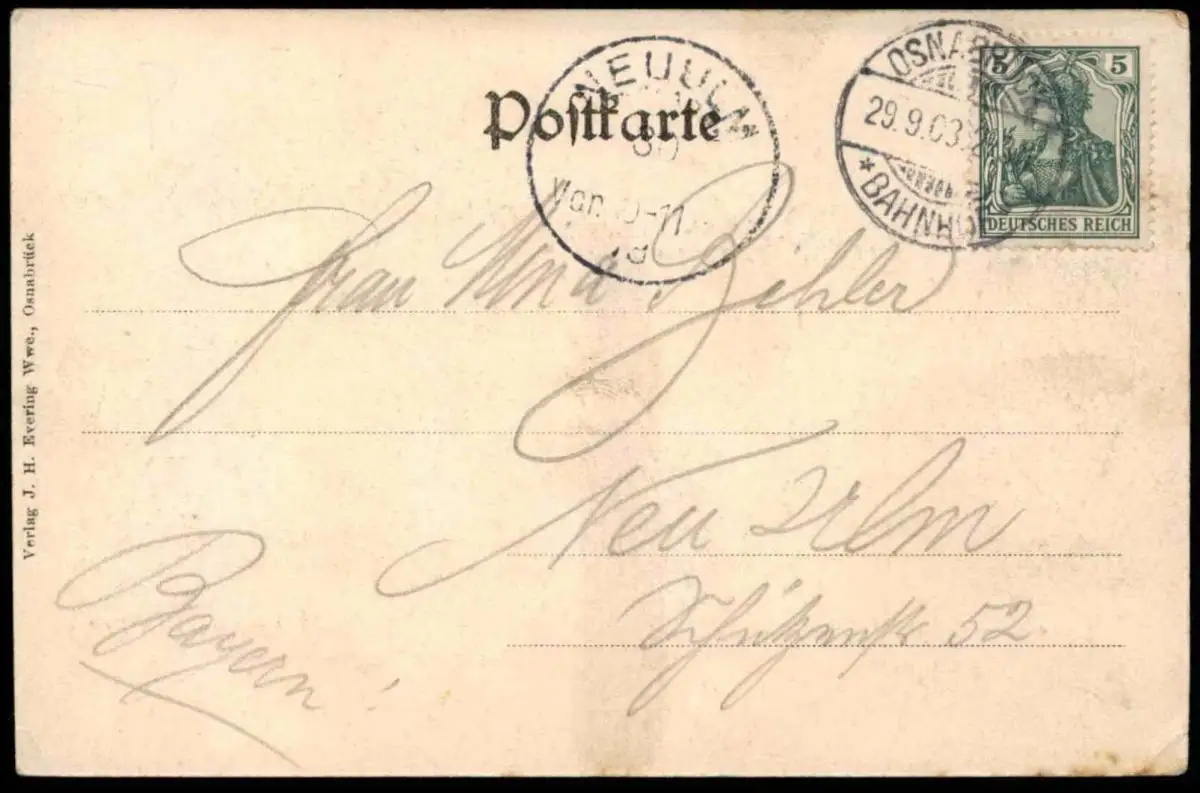 Postkarte
NEUULM
Vor. 10-11
OSNABRÜCK
29.9.03
* BAHNHOF
5 5
DEUTSCHES REICH
Frau Bihler
Neu Ulm
Schützenstr 52
Bayern!
Verlag J. H. Evering Wwe., Osnabrück